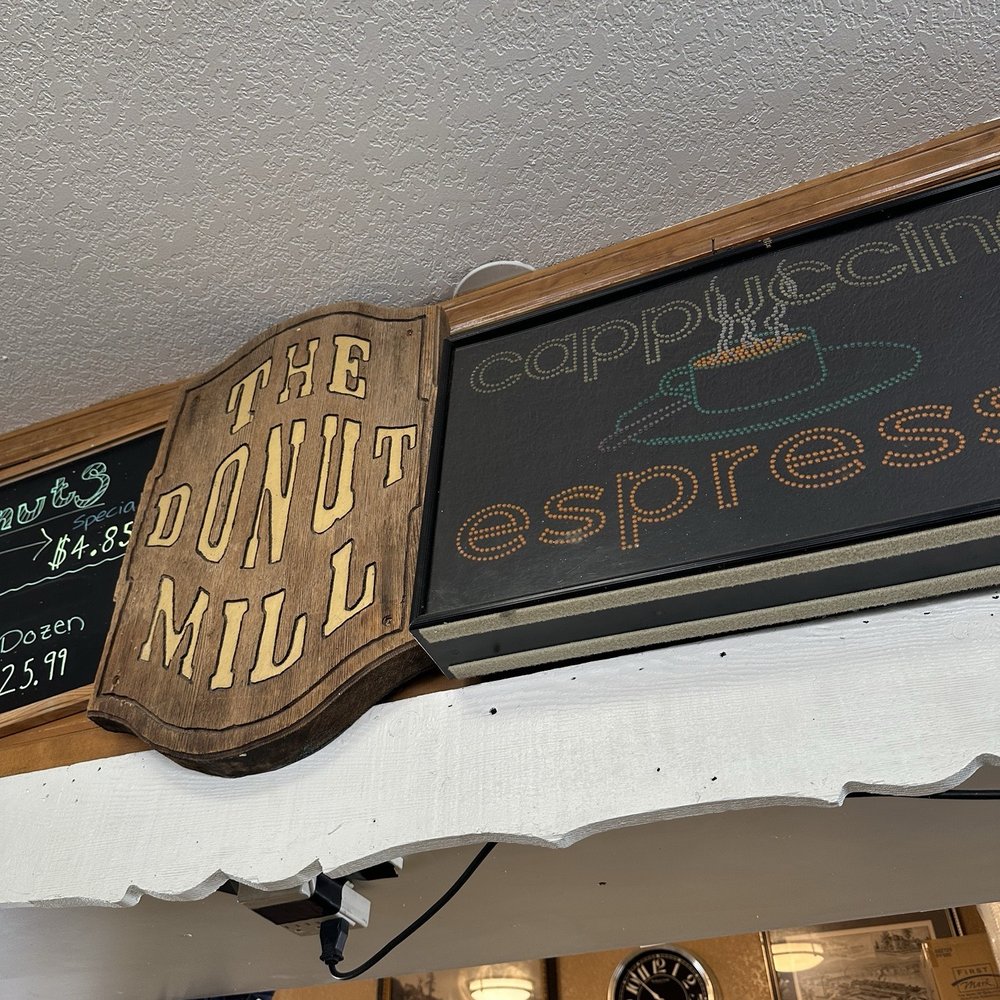 nuts
Special
$4.85
Dozen
25.99
THE
DONUT
MILL
cappuccin
espress
FIRST
Mark